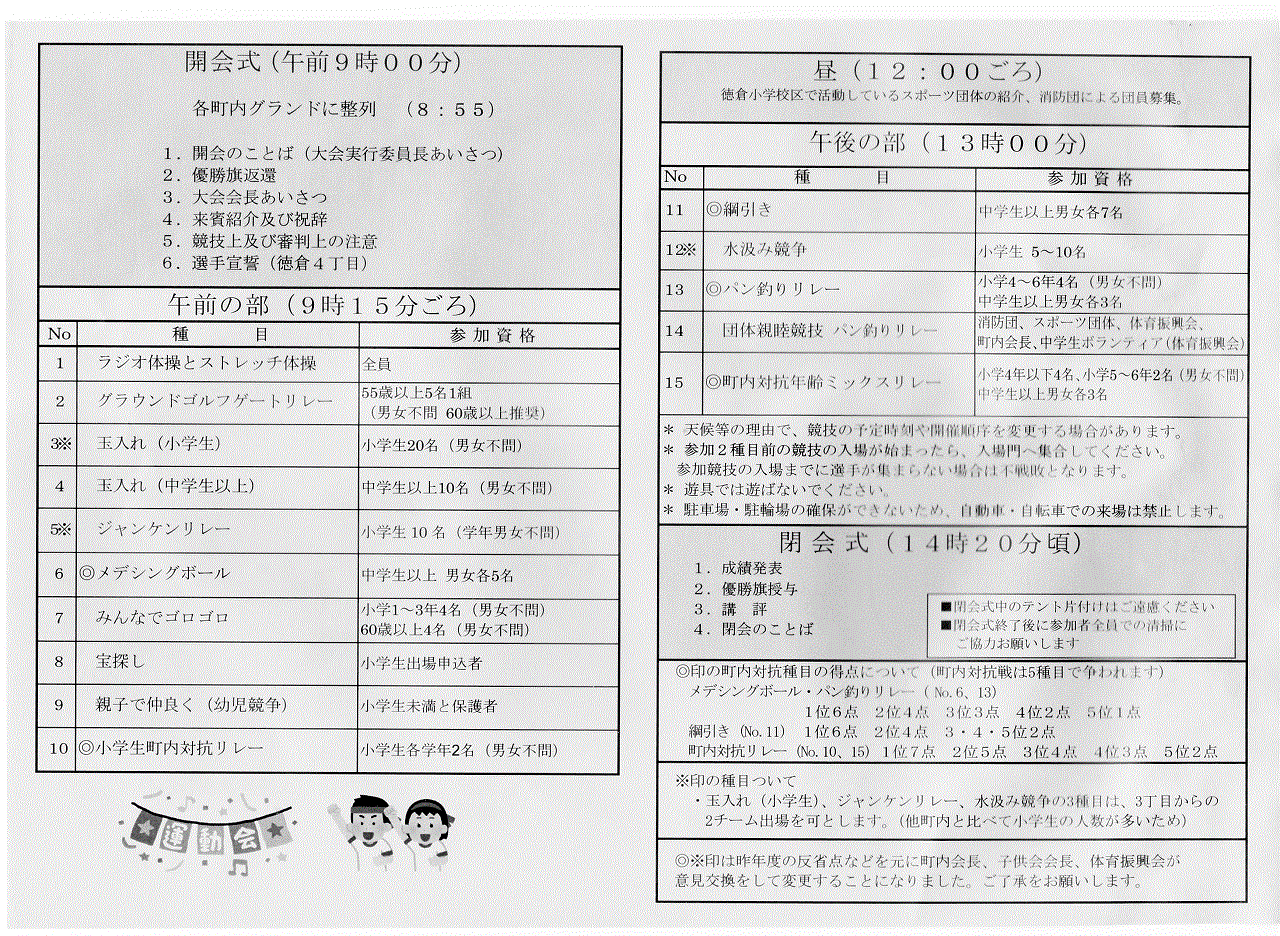 開会式（午前９時００分）
各町内グランドに整列　（８：５５）
１．開会のことば（大会実行委員長あいさつ）
２．優勝旗返還
３．大会会長あいさつ
４．来賓紹介及び祝辞
５．競技上及び審判上の注意
６．選手宣誓（徳倉４丁目）
午前の部（９時１５分ごろ）
No 種　目 参加資格
1 ラジオ体操とストレッチ体操 全員
2 グラウンドゴルフゲートリレー 55歳以上5名1組
（男女不問 60歳以上推奨）
3※ 玉入れ（小学生） 小学生20名（男女不問）
4 玉入れ（中学生以上） 中学生以上10名（男女不問）
5※ ジャンケンリレー 小学生 10 名（学年男女不問）
6 ◎メデシングボール 中学生以上 男女各5名
7 みんなでゴロゴロ 小学1～3年4名（男女不問）
60歳以上4名（男女不問）
8 宝探し 小学生出場申込者
9 親子で仲良く（幼児競争） 小学生未満と保護者
10 ◎小学生町内対抗リレー 小学生各学年2名（男女不問）
運動会
昼（１２：００ごろ）
徳倉小学校区で活動しているスポーツ団体の紹介、消防団による団員募集。
午後の部（１３時００分）
No 種　目 参加資格
11 ◎綱引き 中学生以上男女各7名
12※ 水汲み競争 小学生 5～10名
13 ◎パン釣りリレー 小学4～6年4名（男女不問）
中学生以上男女各3名
14 団体親睦競技 パン釣りリレー 消防団、スポーツ団体、体育振興会、
町内会長、中学生ボランティア（体育振興会）
15 ◎町内対抗年齢ミックスリレー 小学4年以下4名、小学5～6年2名（男女不問）
中学生以上男女各3名
＊ 天候等の理由で、競技の予定時刻や開催順序を変更する場合があります。
＊ 参加２種目前の競技の入場が始まったら、入場門へ集合してください。
参加競技の入場までに選手が集まらない場合は不戦敗となります。
＊ 遊具では遊ばないでください。
＊ 駐車場・駐輪場の確保ができないため、自動車・自転車での来場は禁止します。
閉会式（１４時２０分頃）
１．成績発表
２．優勝旗授与
３．講　評
４．閉会のことば
■閉会式中のテント片付けはご遠慮ください
■閉会式終了後に参加者全員での清掃に
ご協力お願いします
◎印の町内対抗種目の得点について（町内対抗戦は5種目で争われます）
メデシングボール・パン釣りリレー（ No.6、13）
1位６点　2位４点　3位３点　4位２点　5位１点
綱引き（No.11）　1位６点　2位４点　3・4・5位２点
町内対抗リレー（No.10、15）　1位７点　2位５点　3位４点　4位３点　5位２点
※印の種目ついて
・玉入れ（小学生）、ジャンケンリレー、水汲み競争の3種目は、3丁目からの
2チーム出場を可とします。（他町内と比べて小学生の人数が多いため）
◎※印は昨年度の反省点などを元に町内会長、子供会会長、体育振興会が
意見交換をして変更することになりました。ご了承をお願いします。